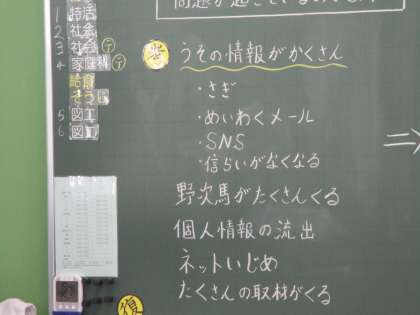 1
2 社会
3 社会 テ
4 家庭科 テ
給食
そうじ
5 図工
6 図工
うその情報がかくさん
・さぎ
・めいわくメール
・SNS
・信らいがなくなる
野次馬がたくさんくる
個人情報の流出
ネットいじめ
たくさんの取材がくる
複